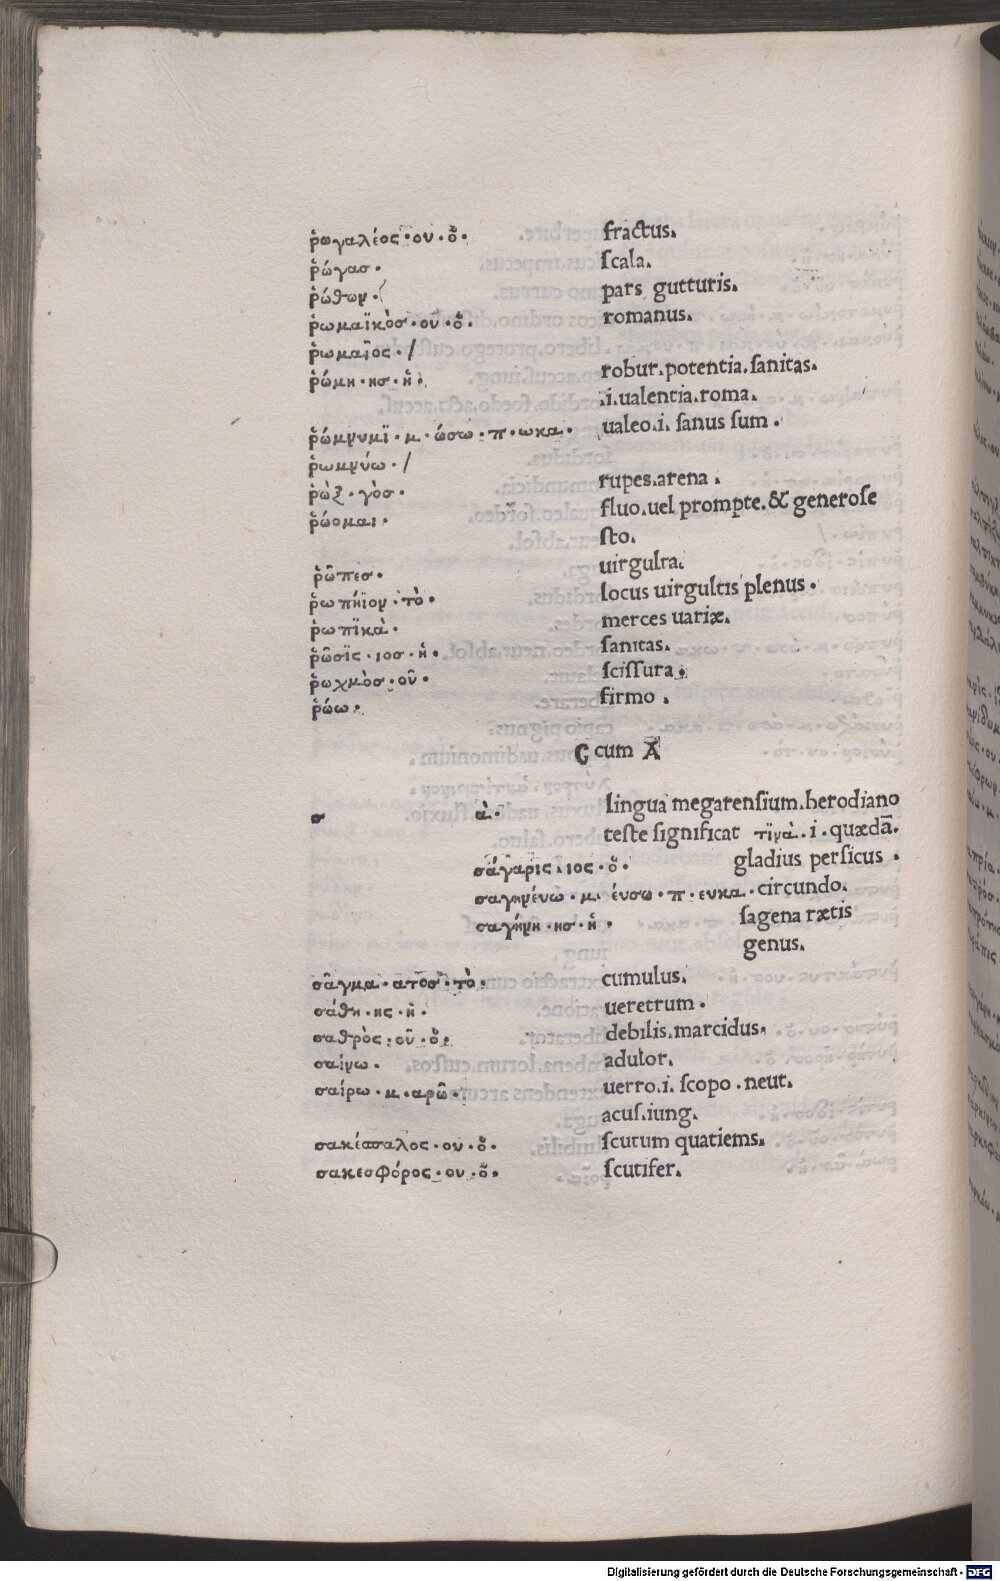 ῥωγαλέος·ου·ὁ· fractus.
ῥώγασ· scala.
ῥώθων·/ pars gutturis.
ῥωμαϊκὸσ·οῦ·ὁ· romanus.
ῥωμαῖος·/
ῥώμη·ησ·ἡ· robur.potentia.sanitas.
.i.ualentia.roma.
ῥώμνυμϊ·μ·ώσω·π·ωκα· ualeo.i. sanus sum·
ῥωμνύω·/
ῥὼξ·γὸσ· rupes.arena .
ῥώομαι· fluo.uel prompte.& generose
sto.
ῥῶπεσ· uirgulta.
ῥωπήϊον·τὸ· locus uirgultis plenus·
ῥωπϊκὰ· merces uariæ.
ῥῶσϊς·ιοσ·ἡ· sanitas.
ῥωχμὸσ·οῦ· scissura.
ῥώω· firmo .
C cum A
σ ὰ· lingua megarensium.herodiano
teste significat τϊνὰ·i·quædā.
σάγαρις·ιος·ὁ· gladius persicus .
σαγηνέυω·μ·έυσω·π·ευκα· circundo.
σαγήνη·ησ·ἡ· sagena rætis
genus.
σᾶγμα·ατοσ·τὸ· cumulus.
σάθη·ης·ἡ· ueretrum·
σαθρὸς·οῦ·ὁ· debilis.marcidus.
σαίνω· adulor.
σαίρω·μ·αρῶ· uerro.i. scopo.neut.
acus.iung.
σακέσπαλος·ου·ὁ· scutum quatiems.
σακεσφόρος·ου·ὁ· scutifer.
Digitalisierung gefördert durch die Deutsche Forschungsgemeinschaft - DFG